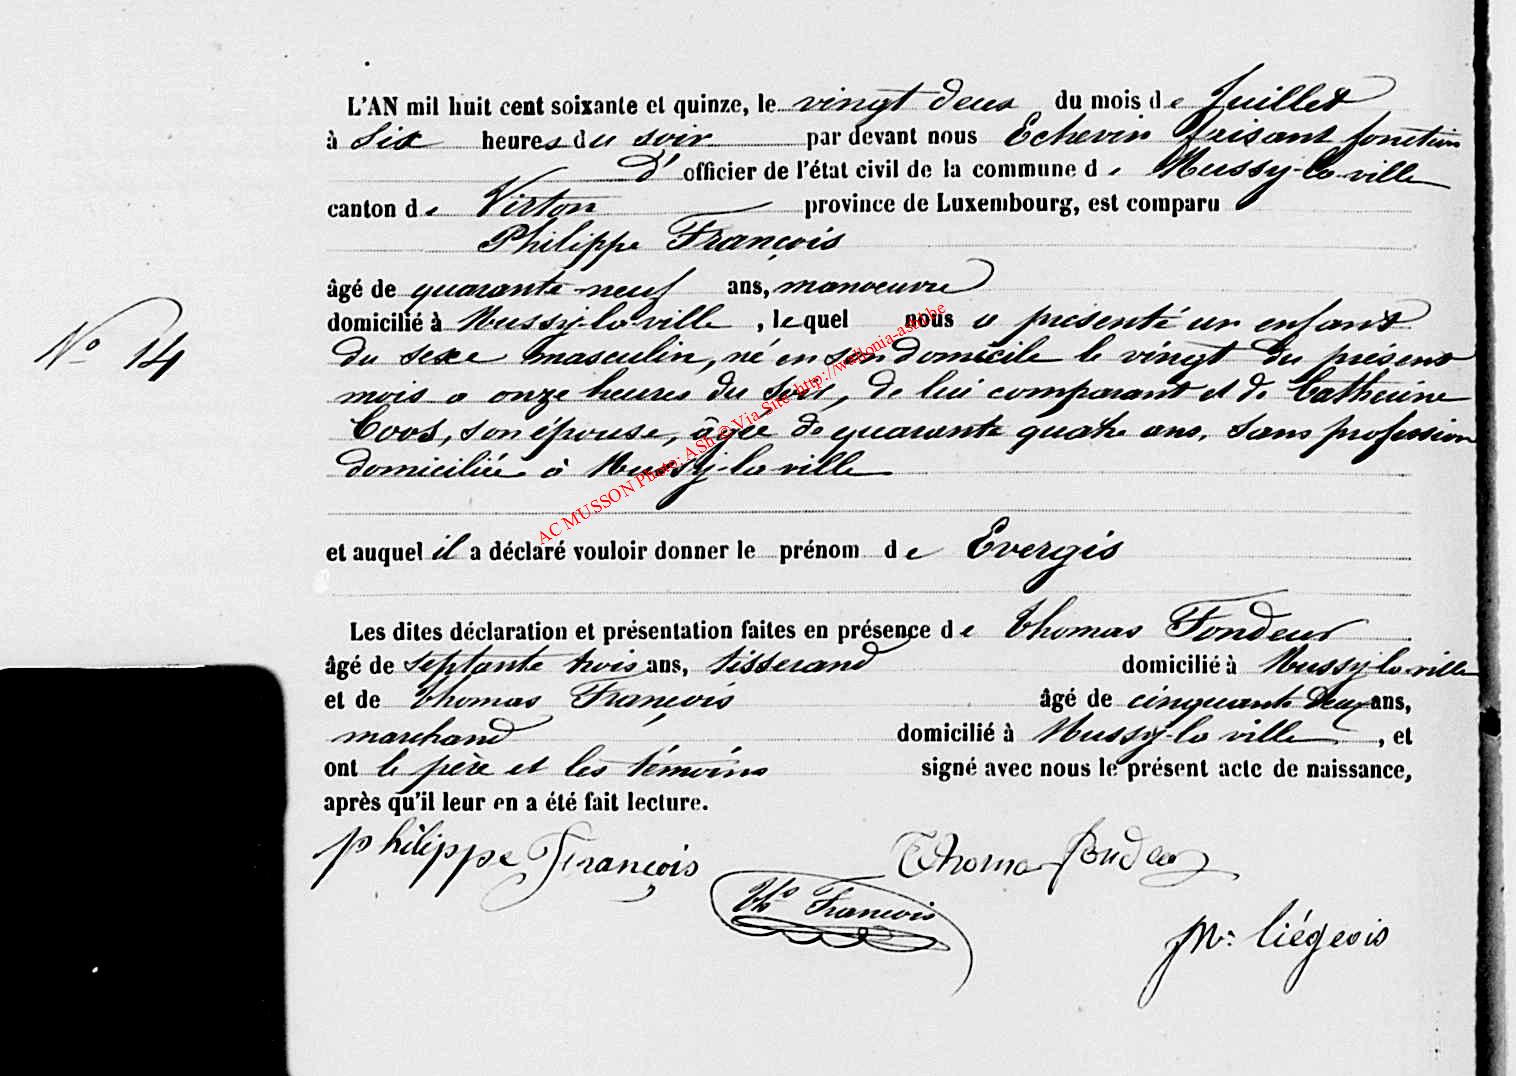 L'AN mil huit cent soixante et quinze, le vingt deux du mois de Juillet
à six heures du soir par devant nous Echevin faisant fonction
d' officier de l'état civil de la commune de Mussy-la-ville
canton de Virton province de Luxembourg, est comparu
Philippe François
âgé de quarante-neuf ans, manoeuvre
domicilié à Mussy-la-ville, lequel nous a présenté un enfant
du sexe masculin, né en son domicile le vingt du présent
N° 14
mois a onze heures du soir, de lui comparant et de Catherine
Coos, son épouse, âgée de quarante quatre ans, sans profession
domiciliée à Mussy-la-ville
AC MUSSON Photo: ASh © Via Site http://wallonia-asbl.be
et auquel il a déclaré vouloir donner le prénom de Evergis
Les dites déclaration et présentation faites en présence de Thomas Fondeur
âgé de septante trois ans, tisserand domicilié à Mussy-la-ville
et de Thomas François âgé de cinquante deux ans,
marchand domicilié à Mussy-la ville, et
ont le père et les témoins signé avec nous le présent acte de naissance,
après qu'il leur en a été fait lecture.
philippe François Thomas fondeur
Th^s François
Liégeois